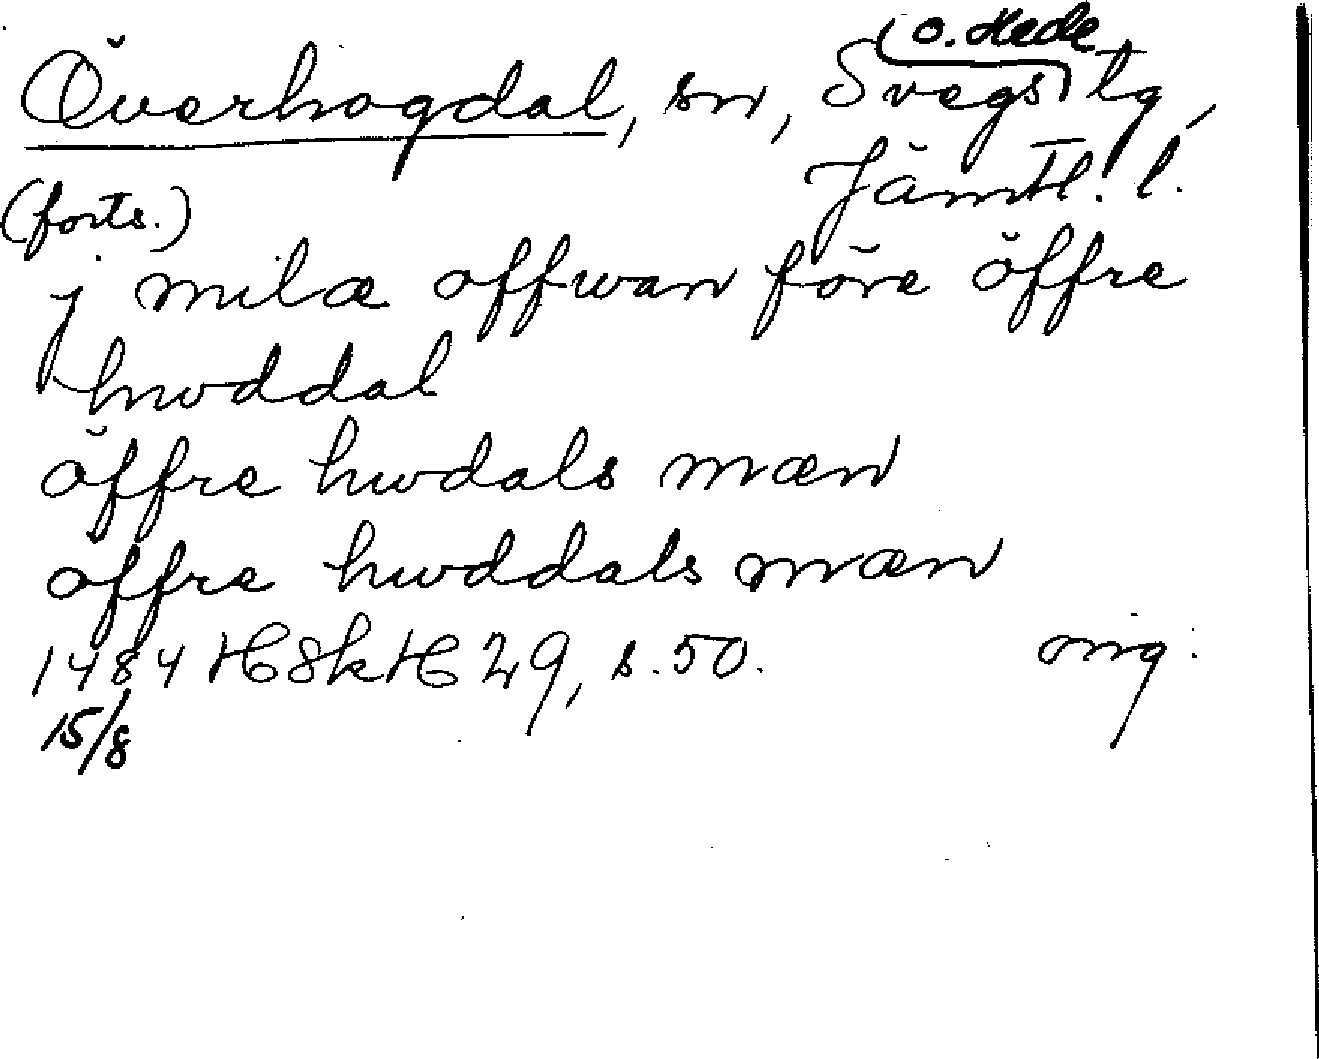 o. Hede
Överhogdal, sn, Svegs tg,
Jämtl. l.
(forts.)
j milæ offwan före öffre
hwddal
öffre hwdals mæn
offre hwddals mæn
1484 HSkH 29, s. 50. orig.
15/8